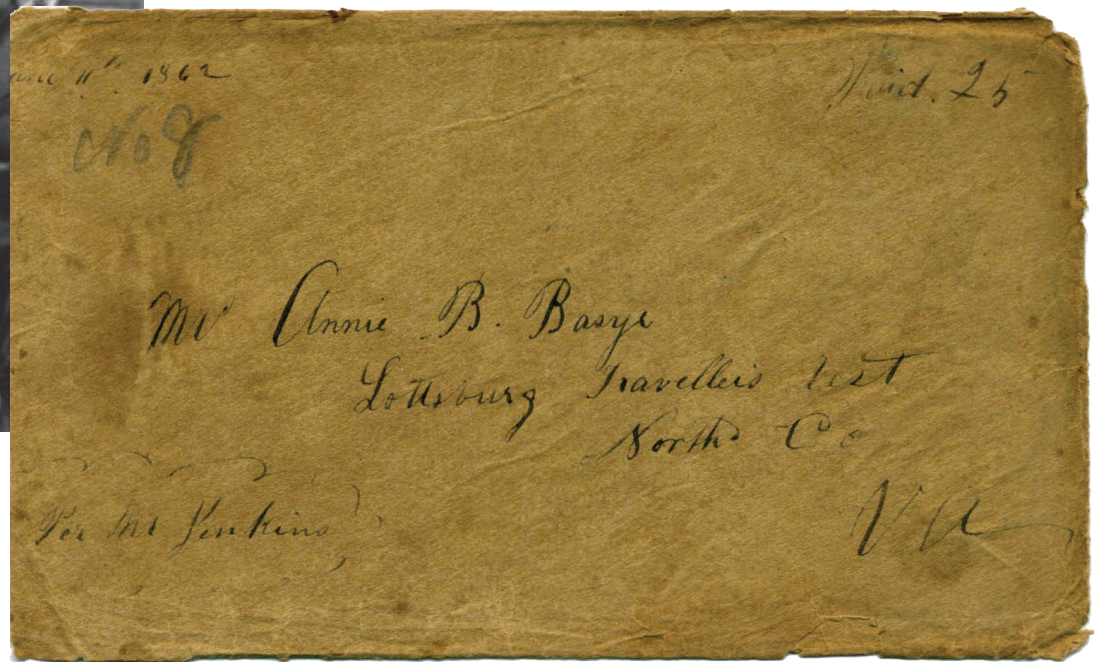 11th 1862
No 8
25
Annie B. Basye
Lottsburg Travellers rest
North Co
Va
Per Mr Jenkins